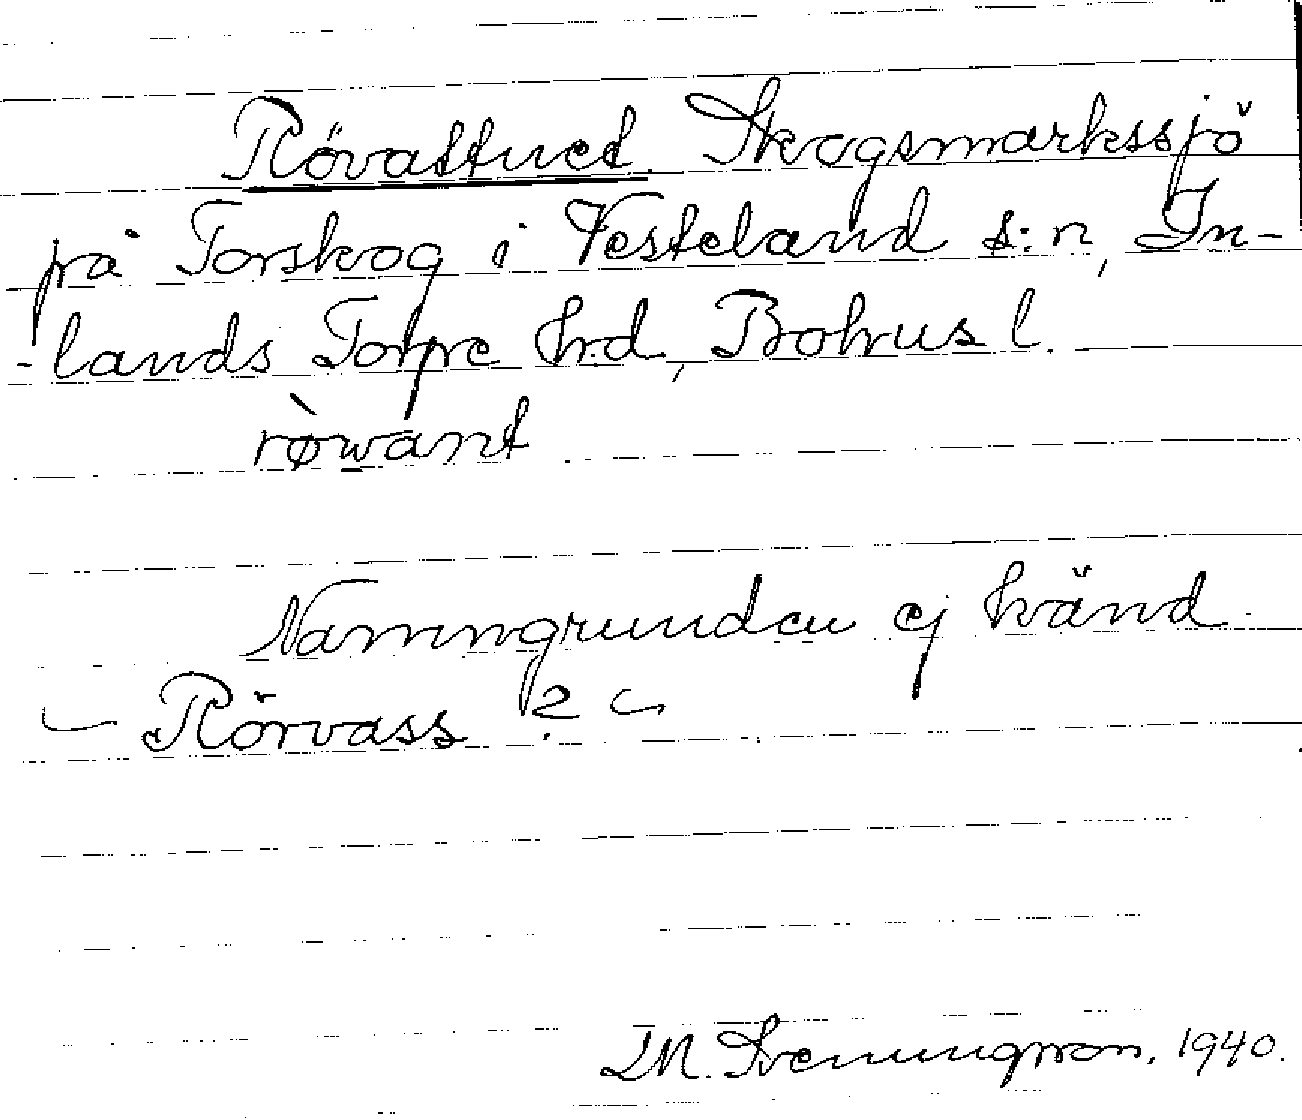 Rövattnet Skogsmarkssjö
på Torskog i Västerland s:n, In-
-lands Torpe hrd, Bohus l.
rø̀want
Namngrunden ej känd
Rörvass ?
M. Svenungsson. 1940.